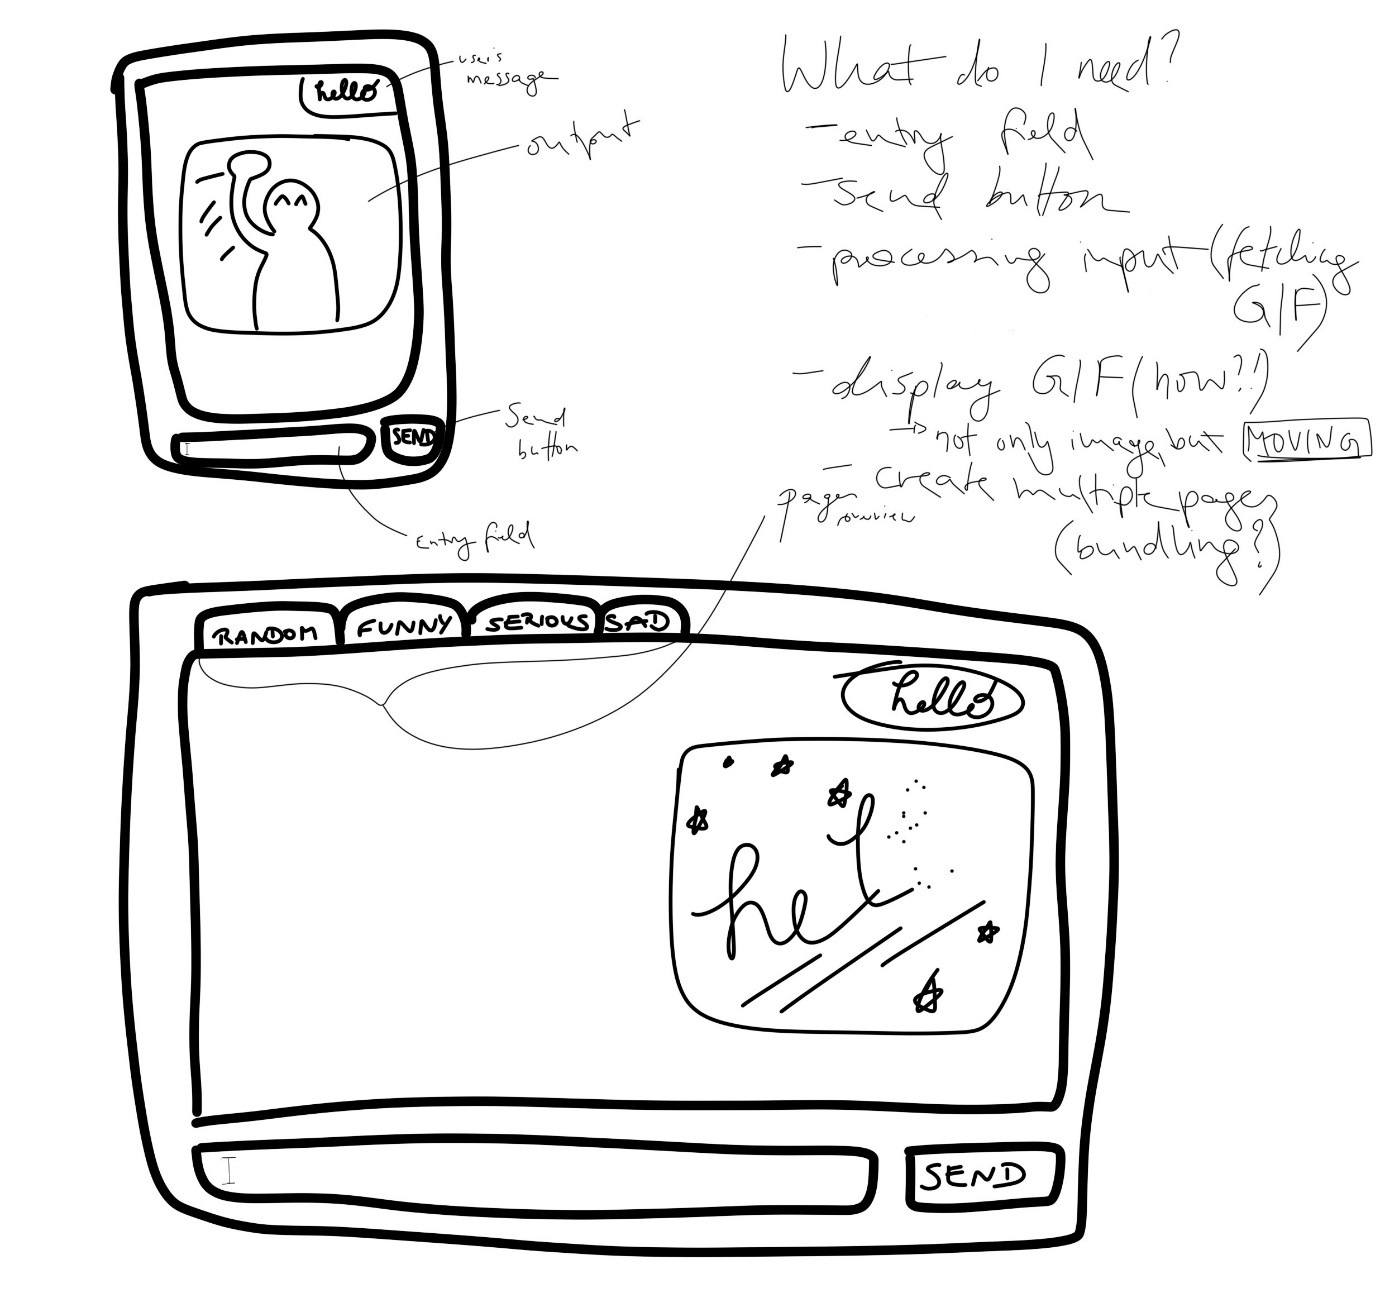 hello
user's
message
output
SEND
Send
button
Entry field
What do I need?
- entry field
- send button
- processing input (fetching
GIF)
- display GIF (how?!)
→ not only image, but MOVING
- create multiple pages
(bundling?)
pages
overview
RANDOM FUNNY SERIOUS SAD
hello
hel
SEND